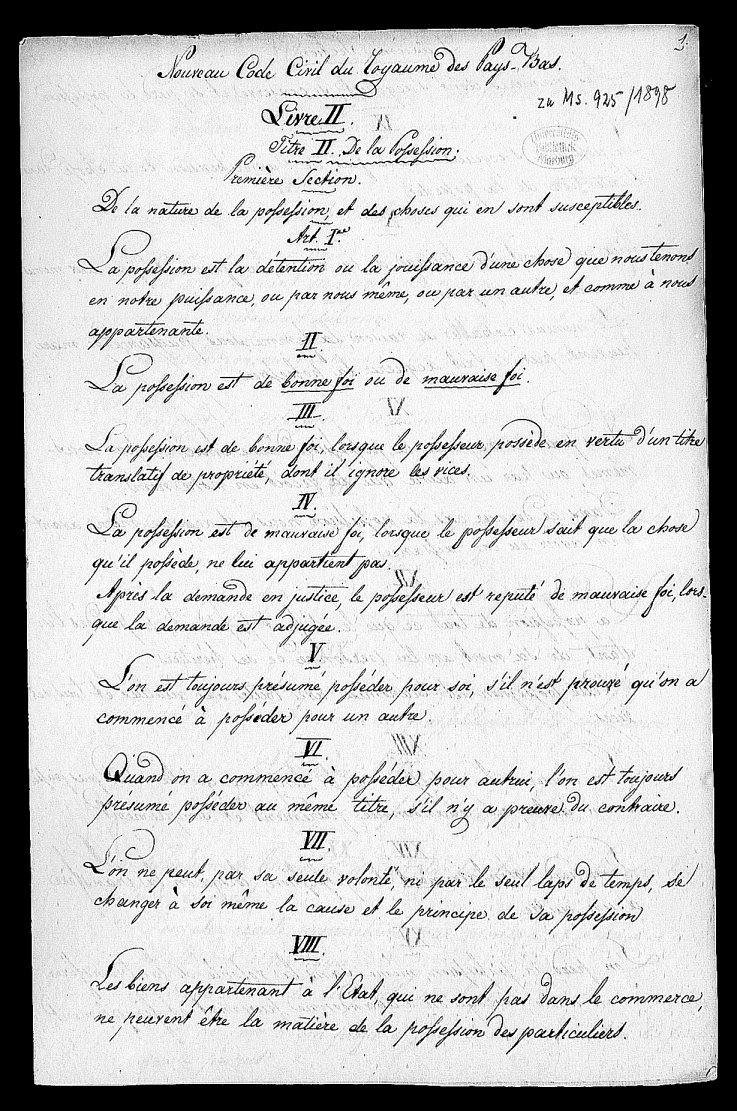 1.
Nouveau Code Civil du Royaume des Pays-Bas.
zu Ms. 925/1898
Livre II.
Titre II. De la Possession.
Première Section.
De la nature de la possession, et des choses qui en sont susceptibles.
Art. Ier
La possession est la détention ou la jouissance d'une chose que nous tenons
en notre puissance, ou par nous même, ou par un autre, et comme à nous
appartenante.
II.
La possession est de bonne foi ou de mauvaise foi.
III.
La possession est de bonne foi, lorsque le possesseur possède en vertu d'un titre
translatif de propriété, dont il ignore les vices.
IV.
La possession est de mauvaise foi, lorsque le possesseur sait que la chose
qu'il possède, ne lui appartient pas.
Après la demande en justice, le possesseur est reputé de mauvaise foi, lors-
que la demande est adjugée.
V
L'on est toujours présumé posséder pour soi, s'il n'est prouvé qu'on a
commencé à posséder pour un autre.
VI
Quand on a commencé à posséder pour autrui, l'on est toujours
présumé posséder au même titre, s'il n'y a preuve du contraire.
VII.
L'on ne peut, par sa seule volonté, ni par le seul laps de temps, se
changer à soi même la cause et le principe de sa possession
VIII.
Les biens appartenant à l'Etat, qui ne sont pas dans le commerce,
ne peuvent être la matière de la possession des particuliers.